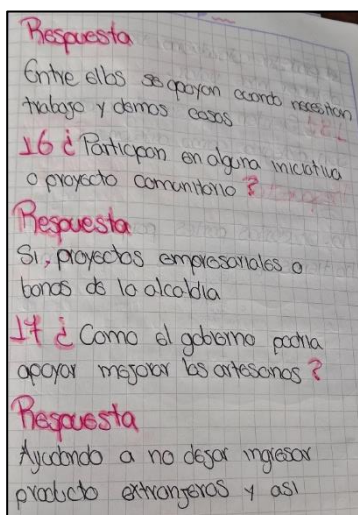 Respuesta
Entre ellos se apoyan cuando necesitan
trabajo y demas cosas
16 ¿ Participan en alguna iniciativa
o proyecto comunitario ?
Respuesta
Si, proyectos empresariales o
bonos de la alcaldia
17 ¿ Como el gobierno podria
apoyar mejorar los artesanos ?
Respuesta
Ayudando a no dejar ingresar
producto extranjeros y asi